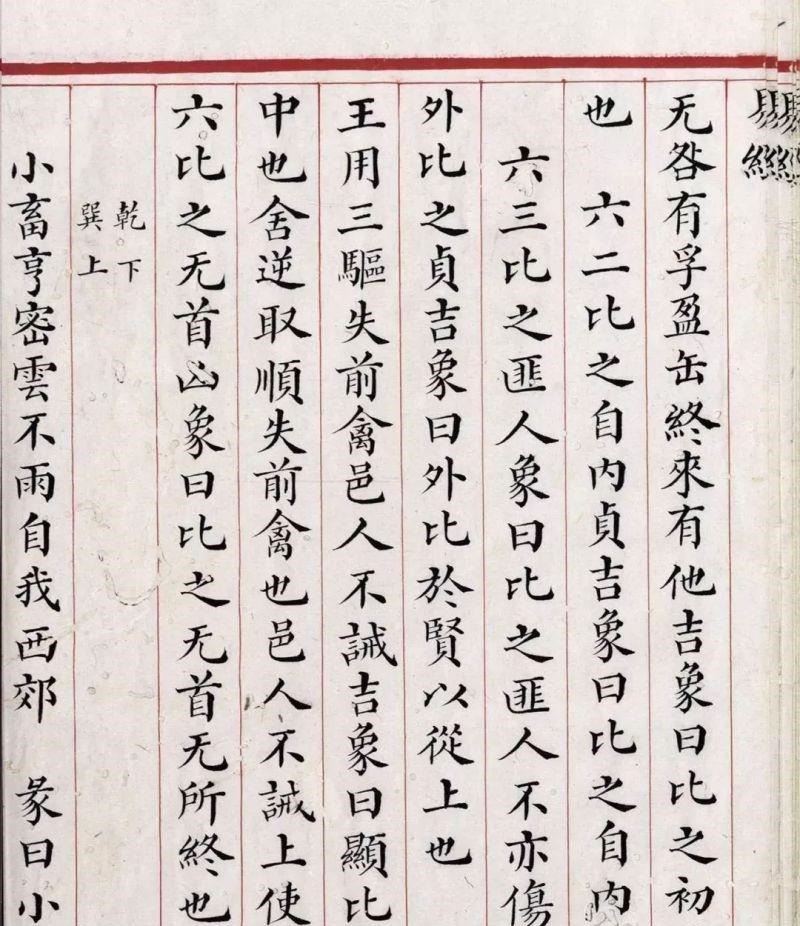 易經
无咎有孚盈缶終來有他吉象曰比之初
也　六二比之自内貞吉象曰比之自内
六三比之匪人象曰比之匪人不亦傷
外比之貞吉象曰外比於賢以從上也
王用三驅失前禽邑人不誡吉象曰顯比
中也舍逆取順失前禽也邑人不誡上使
六比之无首凶象曰比之无首无所終也
乾下
巽上
小畜亨密雲不雨自我西郊　彖曰小